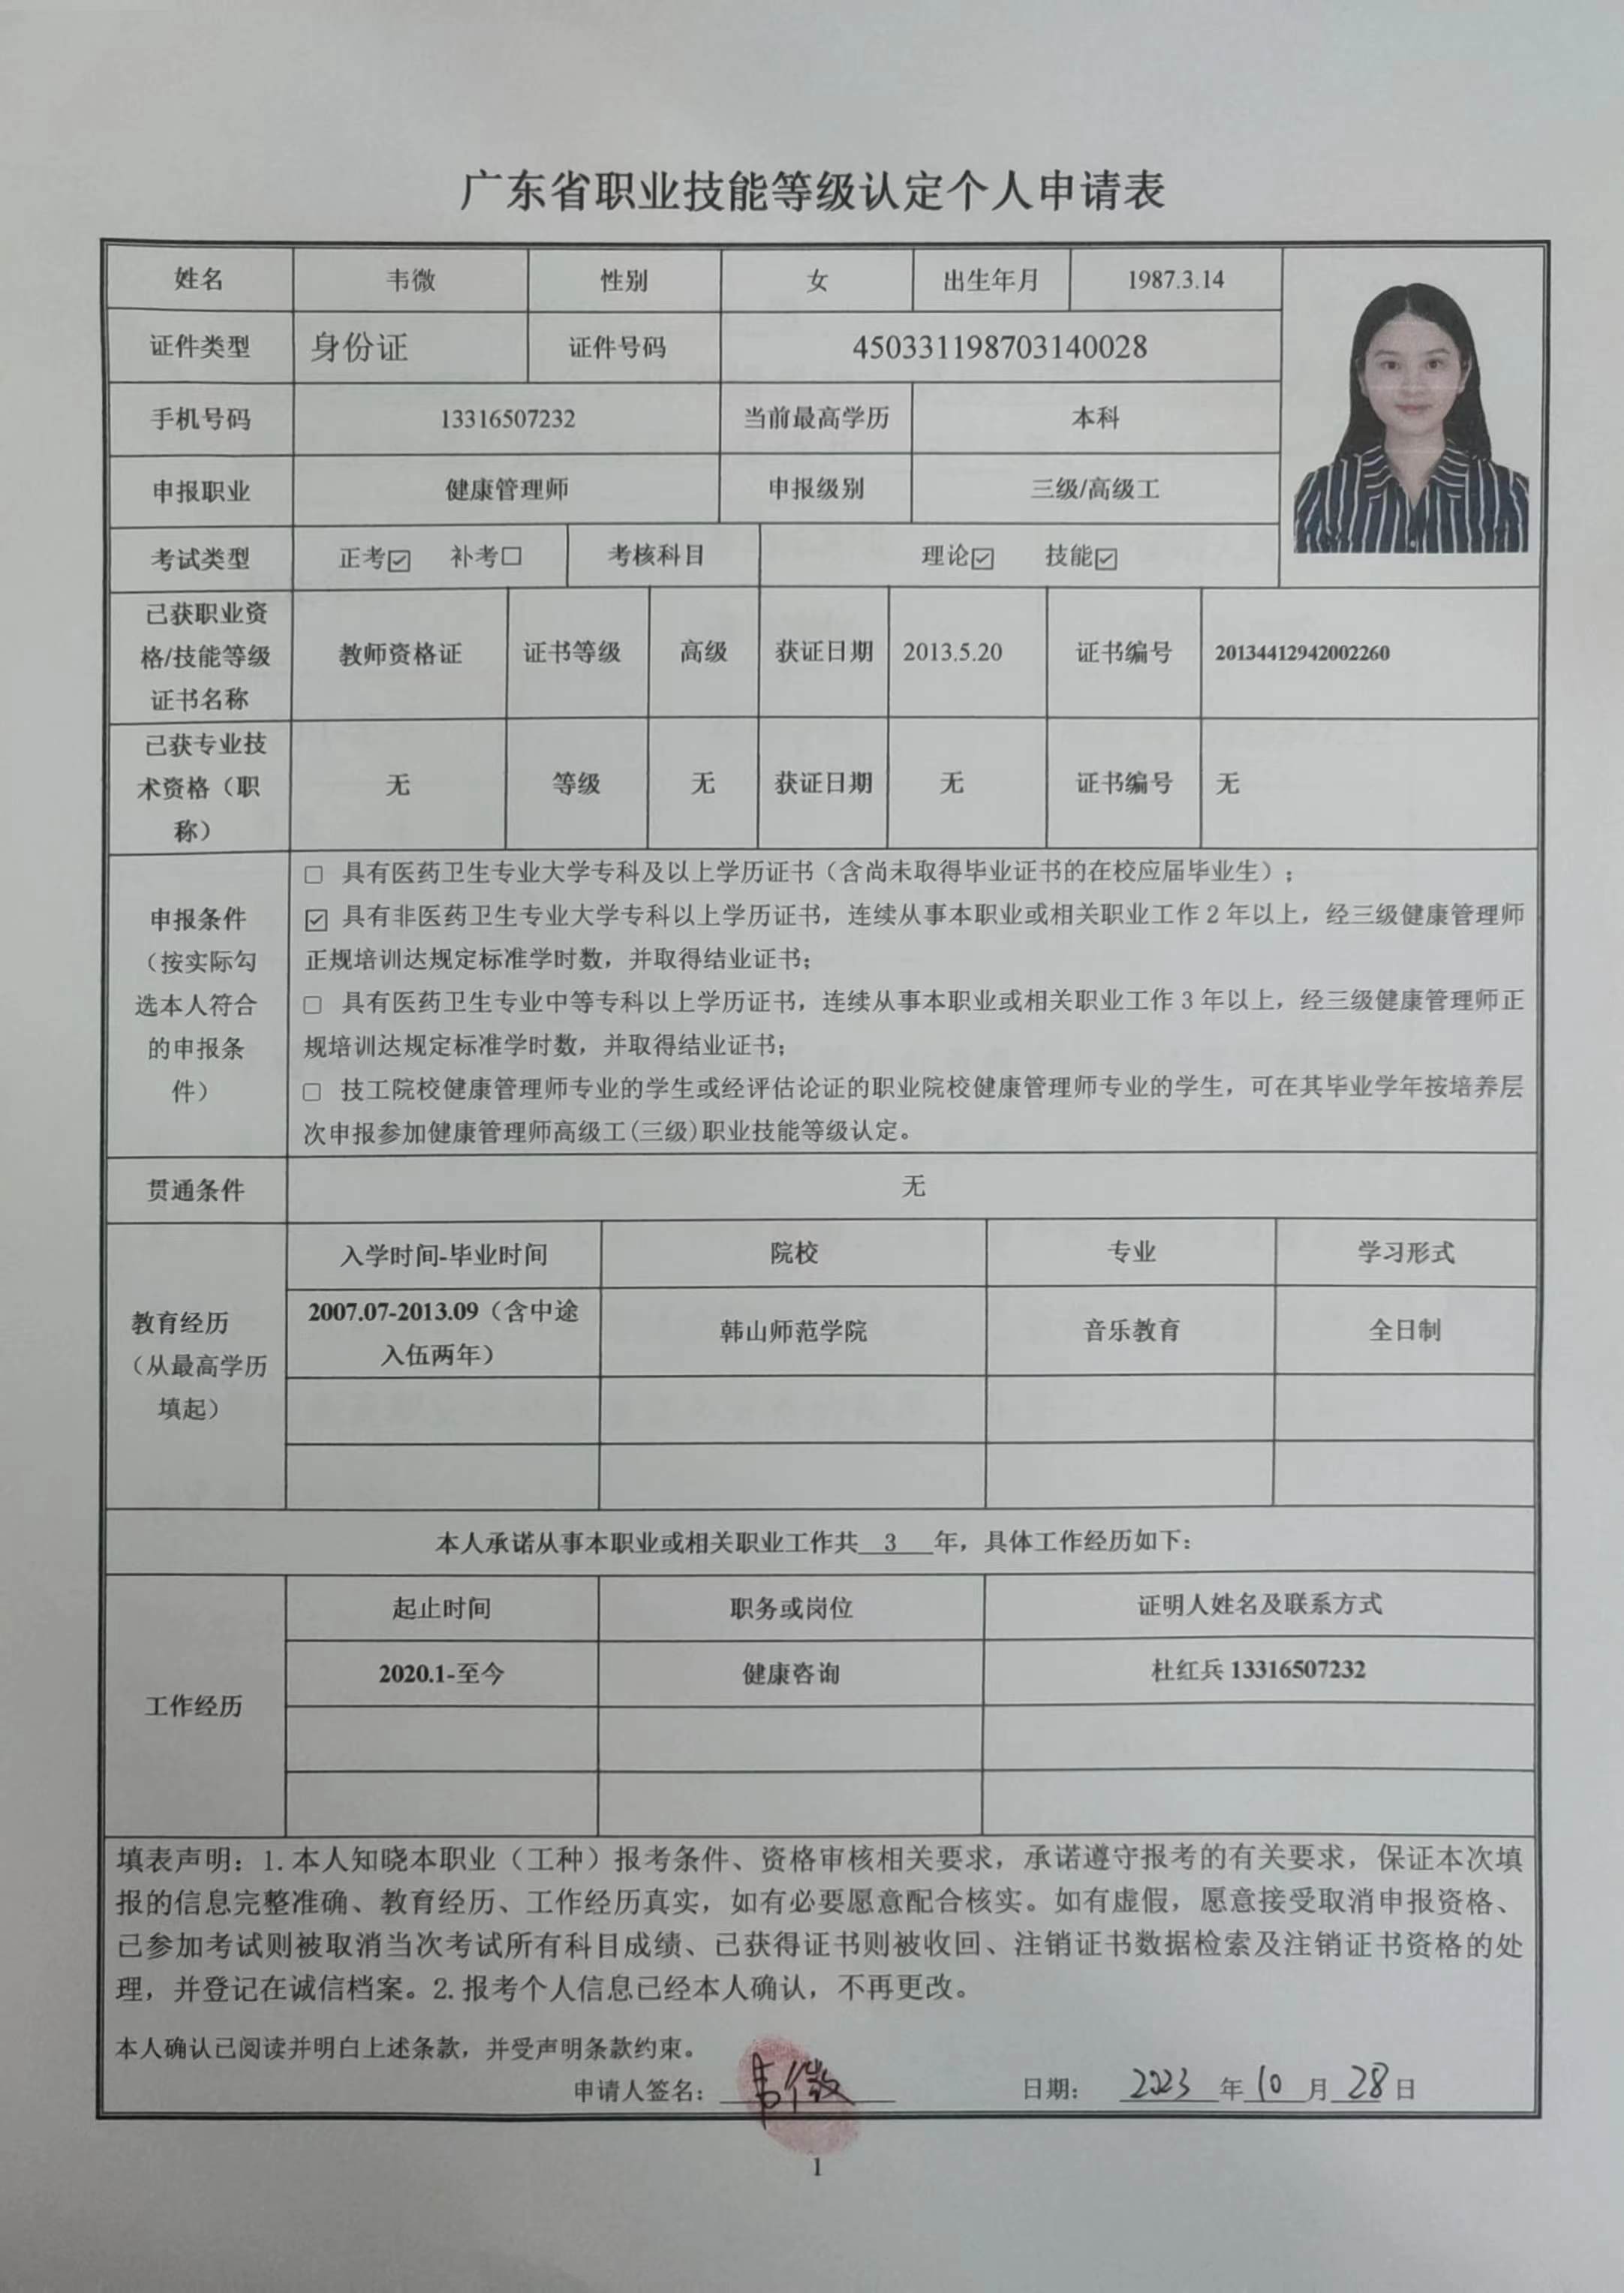 广东省职业技能等级认定个人申请表
姓名 韦微 性别 女 出生年月 1987.3.14
证件类型 身份证 证件号码 450331198703140028
手机号码 13316507232 当前最高学历 本科
申报职业 健康管理师 申报级别 三级/高级工
考试类型 正考☑ 补考□ 考核科目 理论☑ 技能☑
已获职业资
格/技能等级
证书名称
教师资格证 证书等级 高级 获证日期 2013.5.20 证书编号 20134412942002260
已获专业技
术资格（职
称）
无 等级 无 获证日期 无 证书编号 无
申报条件
（按实际勾
选本人符合
的申报条
件）
□ 具有医药卫生专业大学专科及以上学历证书（含尚未取得毕业证书的在校应届毕业生）；
☑ 具有非医药卫生专业大学专科以上学历证书，连续从事本职业或相关职业工作 2 年以上，经三级健康管理师
正规培训达规定标准学时数，并取得结业证书；
□ 具有医药卫生专业中等专科以上学历证书，连续从事本职业或相关职业工作 3 年以上，经三级健康管理师正
规培训达规定标准学时数，并取得结业证书；
□ 技工院校健康管理师专业的学生或经评估论证的职业院校健康管理师专业的学生，可在其毕业学年按培养层
次申报参加健康管理师高级工(三级)职业技能等级认定。
贯通条件 无
教育经历
（从最高学历
填起）
入学时间-毕业时间 院校 专业 学习形式
2007.07-2013.09（含中途
入伍两年） 韩山师范学院 音乐教育 全日制
本人承诺从事本职业或相关职业工作共 3 年，具体工作经历如下：
工作经历
起止时间 职务或岗位 证明人姓名及联系方式
2020.1-至今 健康咨询 杜红兵 13316507232
填表声明：1. 本人知晓本职业（工种）报考条件、资格审核相关要求，承诺遵守报考的有关要求，保证本次填
报的信息完整准确、教育经历、工作经历真实，如有必要愿意配合核实。如有虚假，愿意接受取消申报资格、
已参加考试则被取消当次考试所有科目成绩、已获得证书则被收回、注销证书数据检索及注销证书资格的处
理，并登记在诚信档案。2. 报考个人信息已经本人确认，不再更改。
本人确认已阅读并明白上述条款，并受声明条款约束。
申请人签名：韦微 日期： 2023 年 10 月 28 日
1